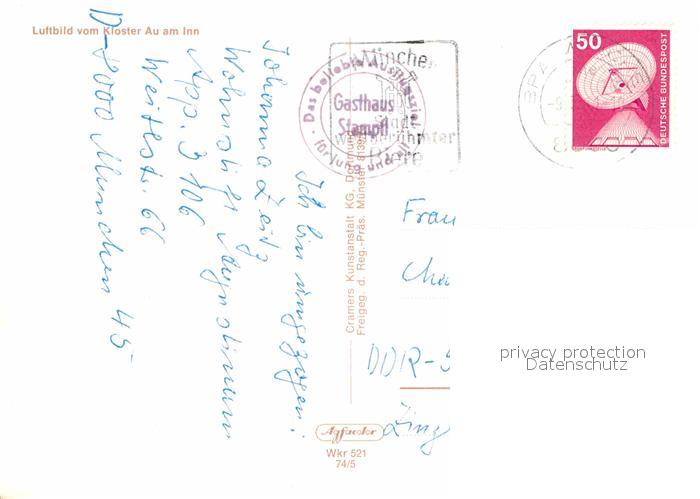 Luftbild vom Kloster Au am Inn
Ich bin umgezogen:
Johanna Zeitz
Wohnstift Augustinum
App. 3 106
Weitlstr. 66
D-8000 München 45
Cramers Kunstanstalt KG, Dortmund
Freigeg. d. Reg.-Präs. Münster
Agfacolor
Wkr 521
74/5
Das beliebte Ausflugsziel
Gasthaus
Stampfl
für Jung und Alt
München
Stadt
weltberühmter
Biere
50
DEUTSCHE BUNDESPOST
Frau
Cha
DDR-
Zing
privacy protection
Datenschutz